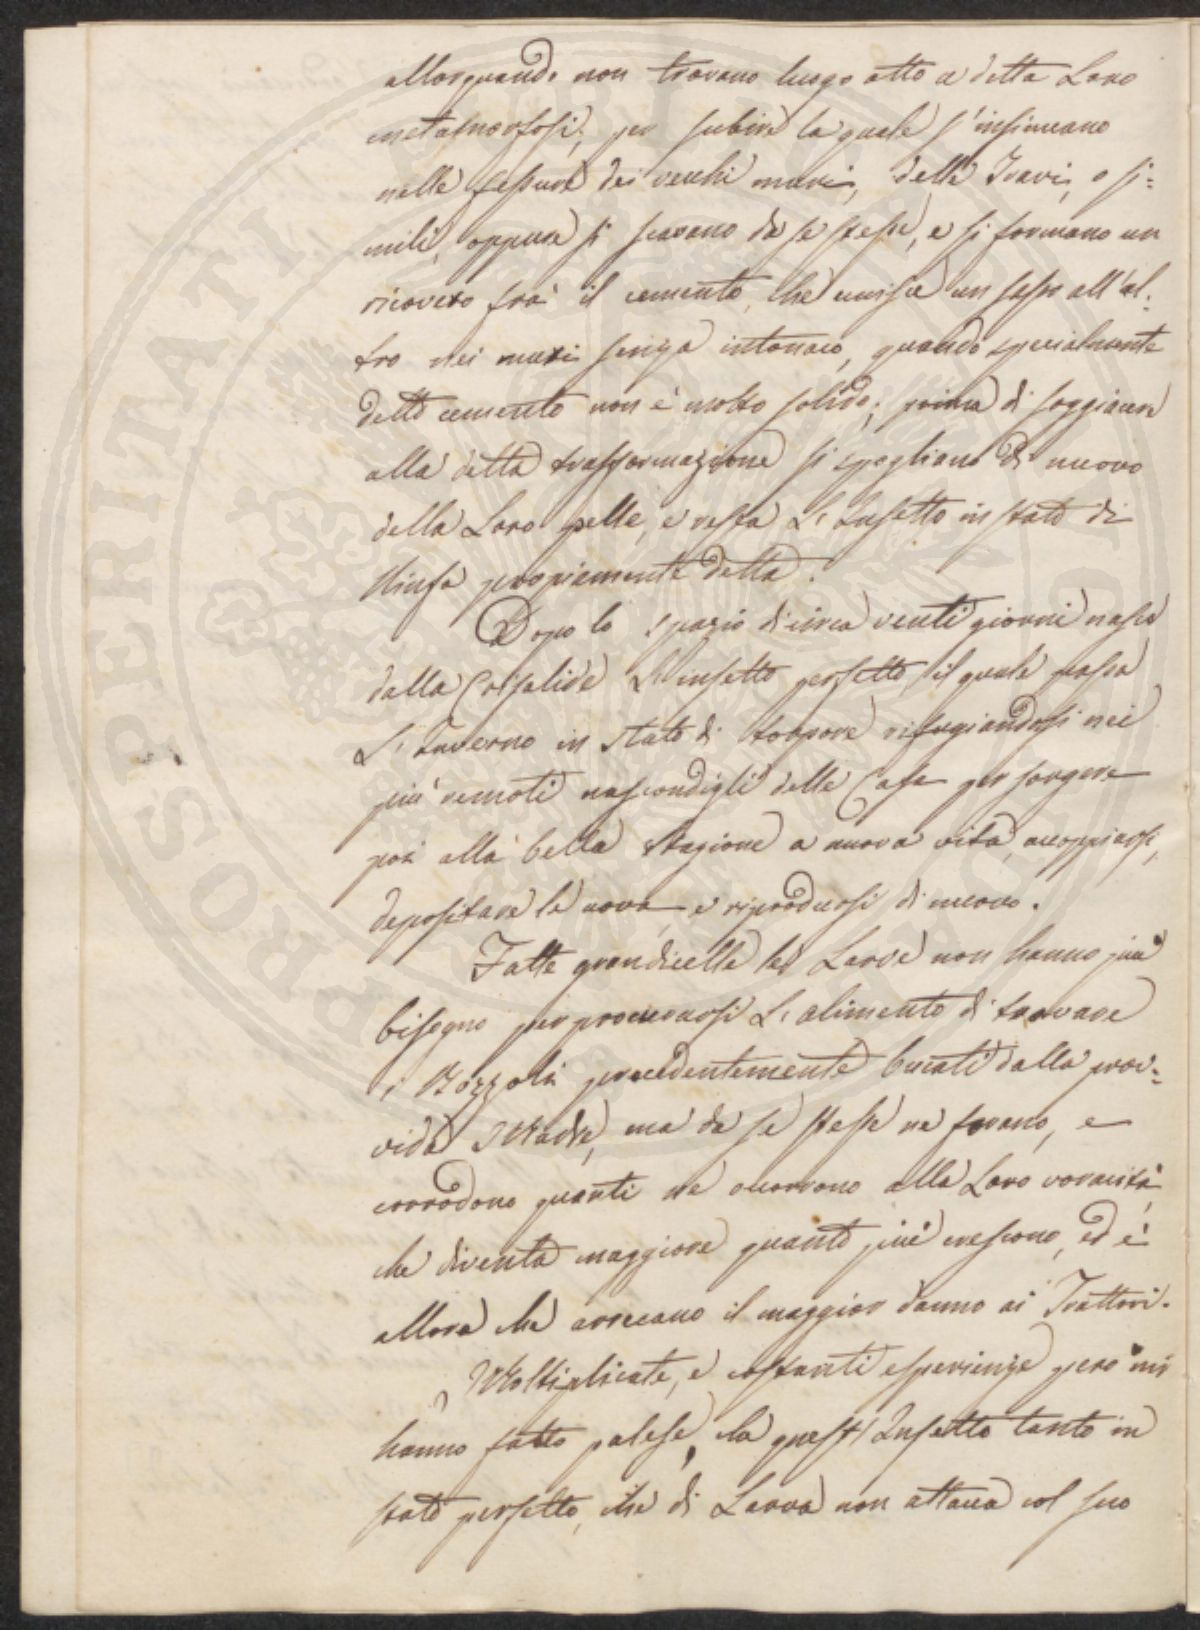 allorquando non trovano luogo atto a detta Loro
metasmorfosi; per subire la quale s'insinuano
nelle fessure dei vecchi muri, delle Travi, o si=
mili, oppure si scavano da se stesse, e si formano un
ricovero frà il cemento, che unisce un sasso all'al=
tro nei muri senza intonaco, quando specialmente
detto cemento non è molto solido; prima di soggiacere
alla detta trasformazione si spogliano di nuovo
della Loro pelle, e resta L'Insetto in stato di
Ninfa propriamente detta.
Dopo lo spazio di circa venti giorni nasce
dalla Crisalide L'insetto perfetto, il quale passa
L'Inverno in stato di torpore rifugiandosi nei
più remoti nascondigli delle Case per sorgere
poi alla bella stagione a nuova vita, accoppiarsi,
depositare le uova e riprodursi di nuovo.
Fatte grandicelle le Larve non hanno più
bisogno per procurarsi L'alimento di trovare
i Bozzoli precedentemente bucati dalla prov=
vida Madre, ma da se stesse ne forano, e
corrodono quanti ne occorrono alla Loro voracità,
che diventa maggiore quanto più crescono, ed è
allora che arrecano il maggior danno ai Trattori.
Moltiplicate, e costanti esperienze però mi
hanno fatto palese, che quest'Insetto tanto in
stato perfetto, che di Larva non attacca col suo